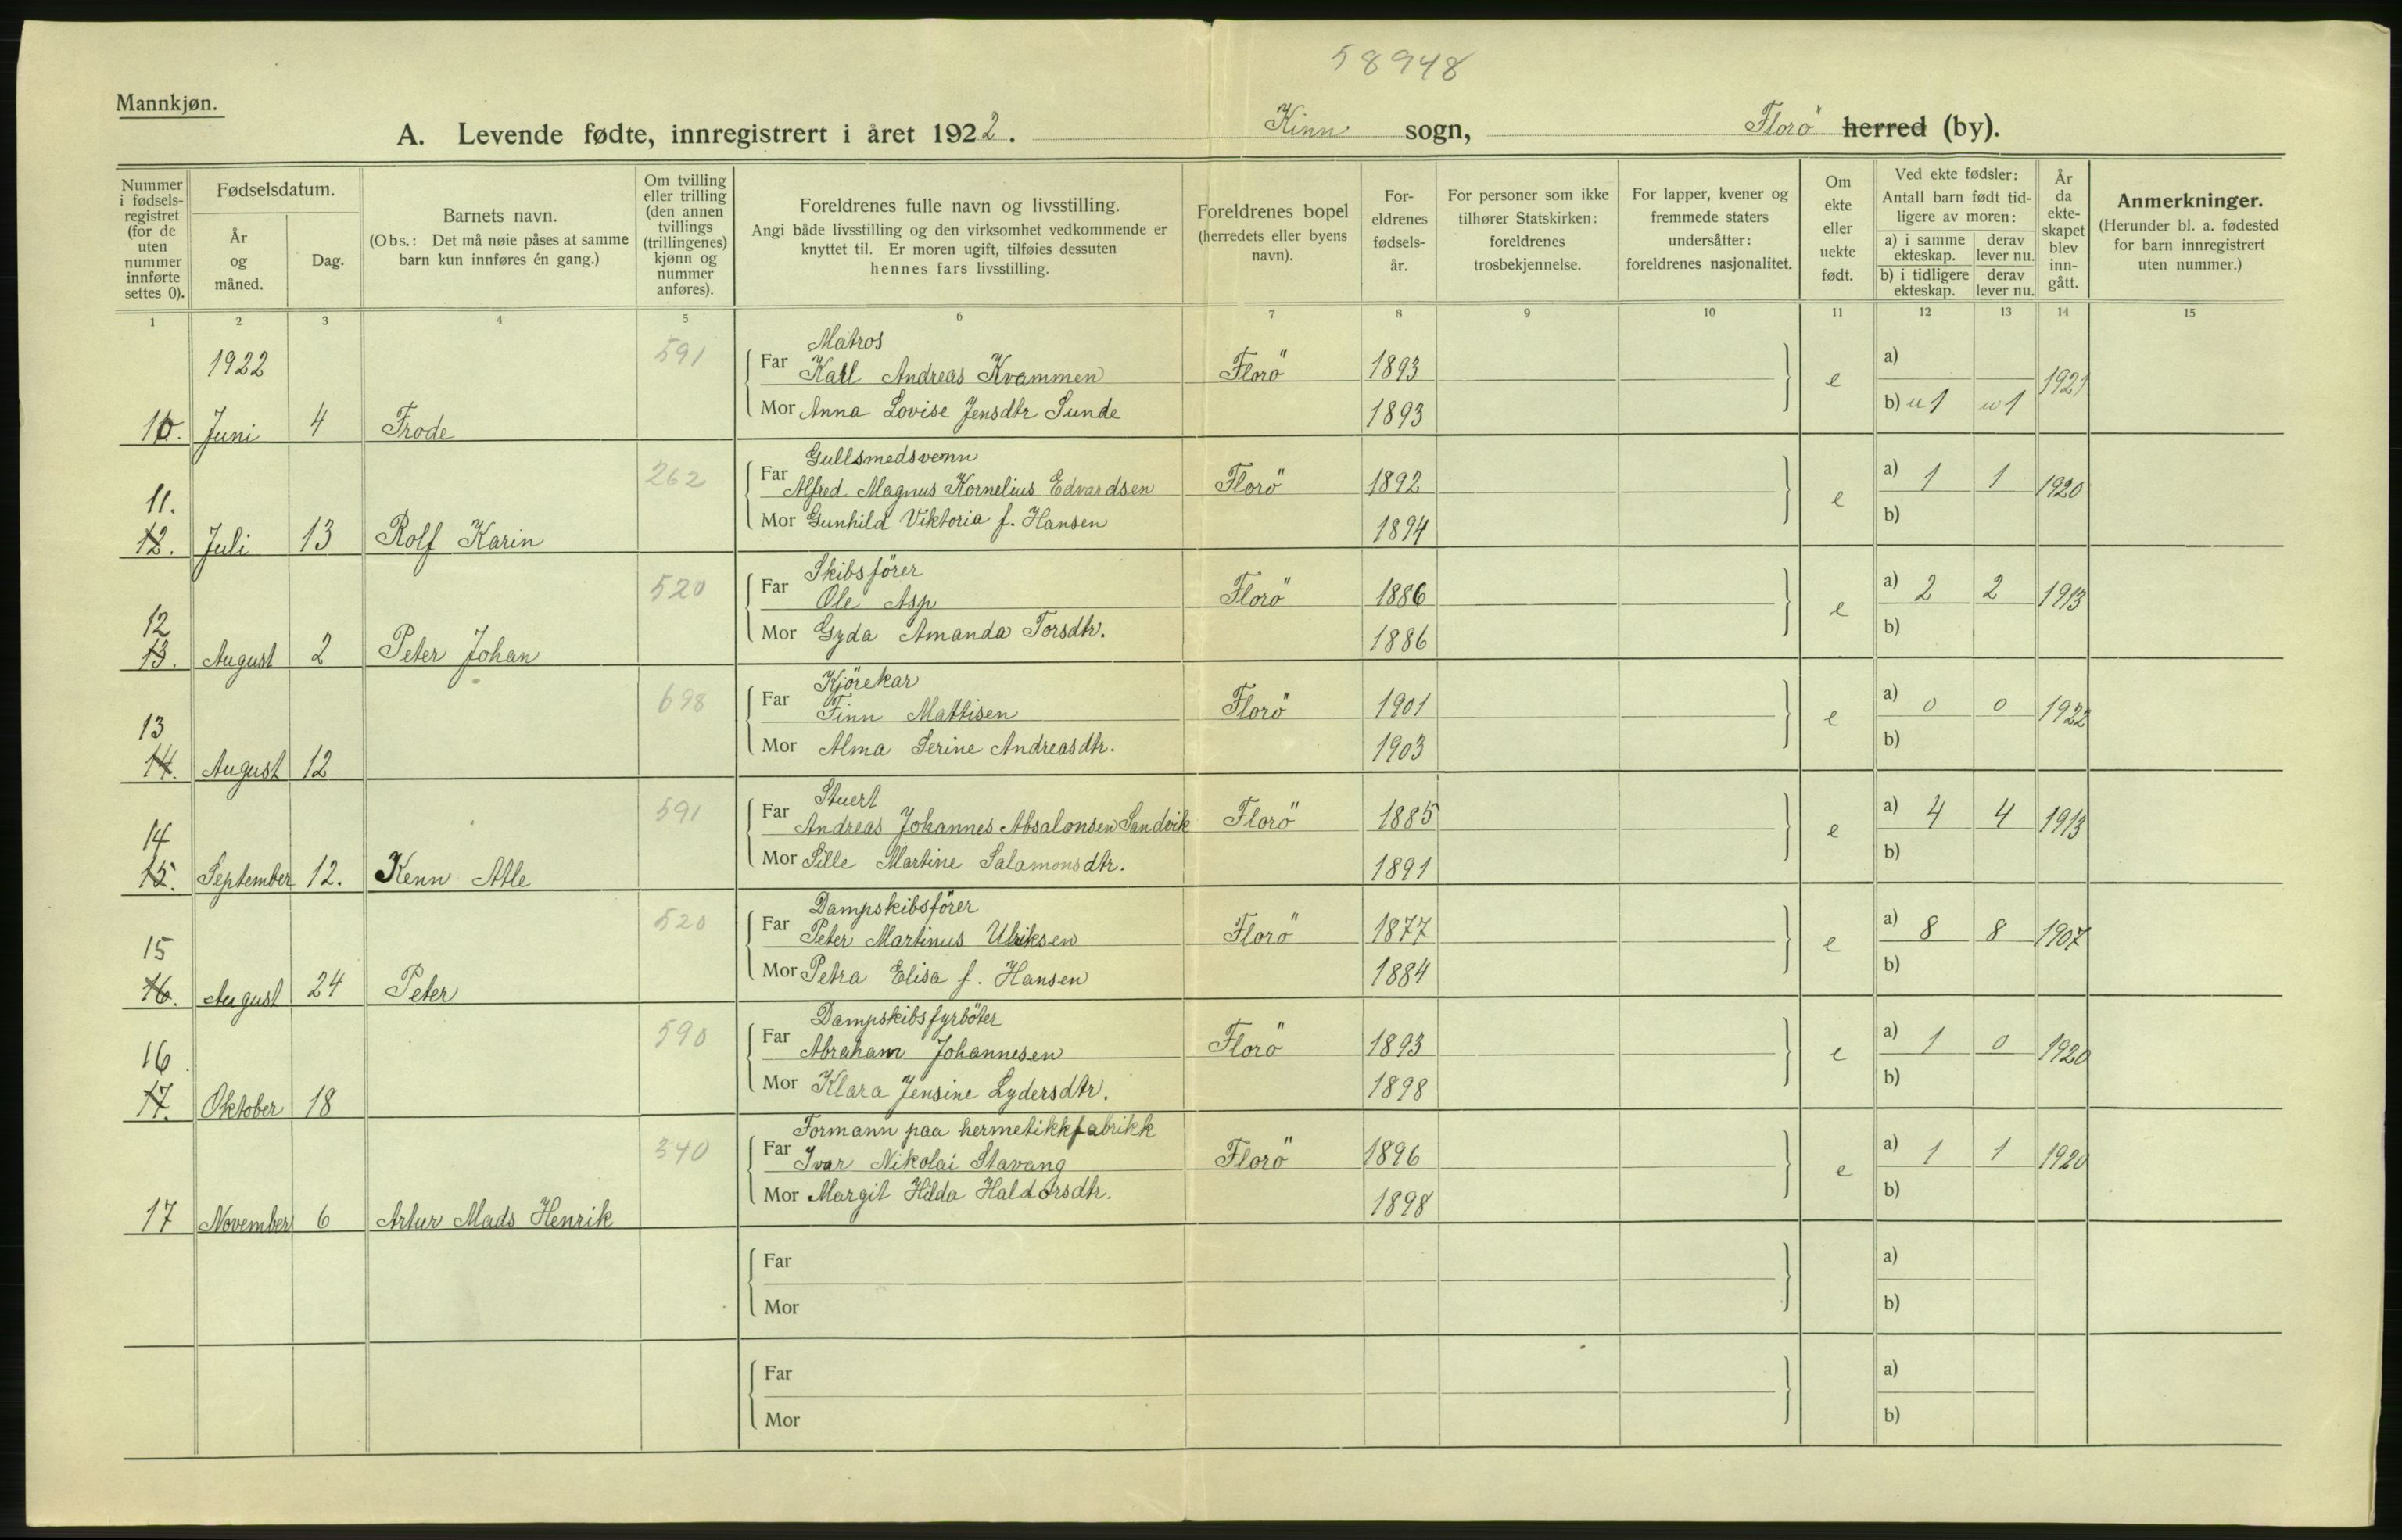 58948
Mannkjøn.
A. Levende fødte, innregistrert i året 1922. Kinn sogn, Florö herred (by).
Nummer i fødsels-registret (for de uten nummer innførte settes 0).
Fødselsdatum.
År og måned.
Dag.
Barnets navn.
(Obs.: Det må nøie påses at samme barn kun innføres én gang.)
Om tvilling eller trilling (den annen tvillings (trillingenes) kjønn og nummer anføres).
Foreldrenes fulle navn og livsstilling.
Angi både livsstilling og den virksomhet vedkommende er knyttet til. Er moren ugift, tilføies dessuten hennes fars livsstilling.
Foreldrenes bopel (herredets eller byens navn).
For-eldrenes fødsels-år.
For personer som ikke tilhører Statskirken: foreldrenes trosbekjennelse.
For lapper, kvener og fremmede staters undersåtter: foreldrenes nasjonalitet.
Om ekte eller uekte født.
Ved ekte fødsler:
Antall barn født tid-ligere av moren:
a) i samme ekteskap. derav lever nu.
b) i tidligere ekteskap. derav lever nu.
År da ekte-skapet blev inn-gått.
Anmerkninger.
(Herunder bl. a. fødested for barn innregistrert uten nummer.)
1 2 3 4 5 6 7 8 9 10 11 12 13 14 15
1922 591 Matros
Far Karl Andreas Kvammen Florö 1893 e a) 1921
Mor Anna Lovise Jensdtr Sunde 1893 b) u1 u1
10. Juni 4 Frode
262 Gullsmedsvenn
Far Alfred Magnus Kornelius Edvardsen Florö 1892 e a) 1 1 1920
11.
Mor Gunhild Viktoria f. Hansen 1894 b)
12. Juli 13 Rolf Karin
520 Skibsförer
Far Ole Asp Florö 1886 e a) 2 2 1913
12
Mor Gyda Amanda Torsdtr. 1886 b)
13. August 2 Peter Johan
698 Kjörekar
Far Finn Mattisen Florö 1901 e a) 0 0 1922
13
Mor Alma Serine Andreasdtr. 1903 b)
14. August 12
591 Stuert
Far Andreas Johannes Absalonsen Sandvik Florö 1885 e a) 4 4 1913
14
Mor Sille Martine Salamonsdtr. 1891 b)
15. September 12. Kenn Atle
520 Dampskibsförer
Far Peter Martinus Ulriksen Florö 1877 e a) 8 8 1907
15
Mor Petra Elisa f. Hansen 1884 b)
16. August 24 Peter
590 Dampskibsfyrböter
Far Abraham Johannesen Florö 1893 e a) 1 0 1920
16
Mor Klara Jensine Lydersdtr. 1898 b)
17. Oktober 18
340 Formann paa hermetikkfabrikk
Far Ivar Nikolai Stavang Florö 1896 e a) 1 1 1920
Mor Margit Hilda Haldorsdtr. 1898 b)
17 November 6 Artur Mads Henrik
Far a)
Mor b)
Far a)
Mor b)